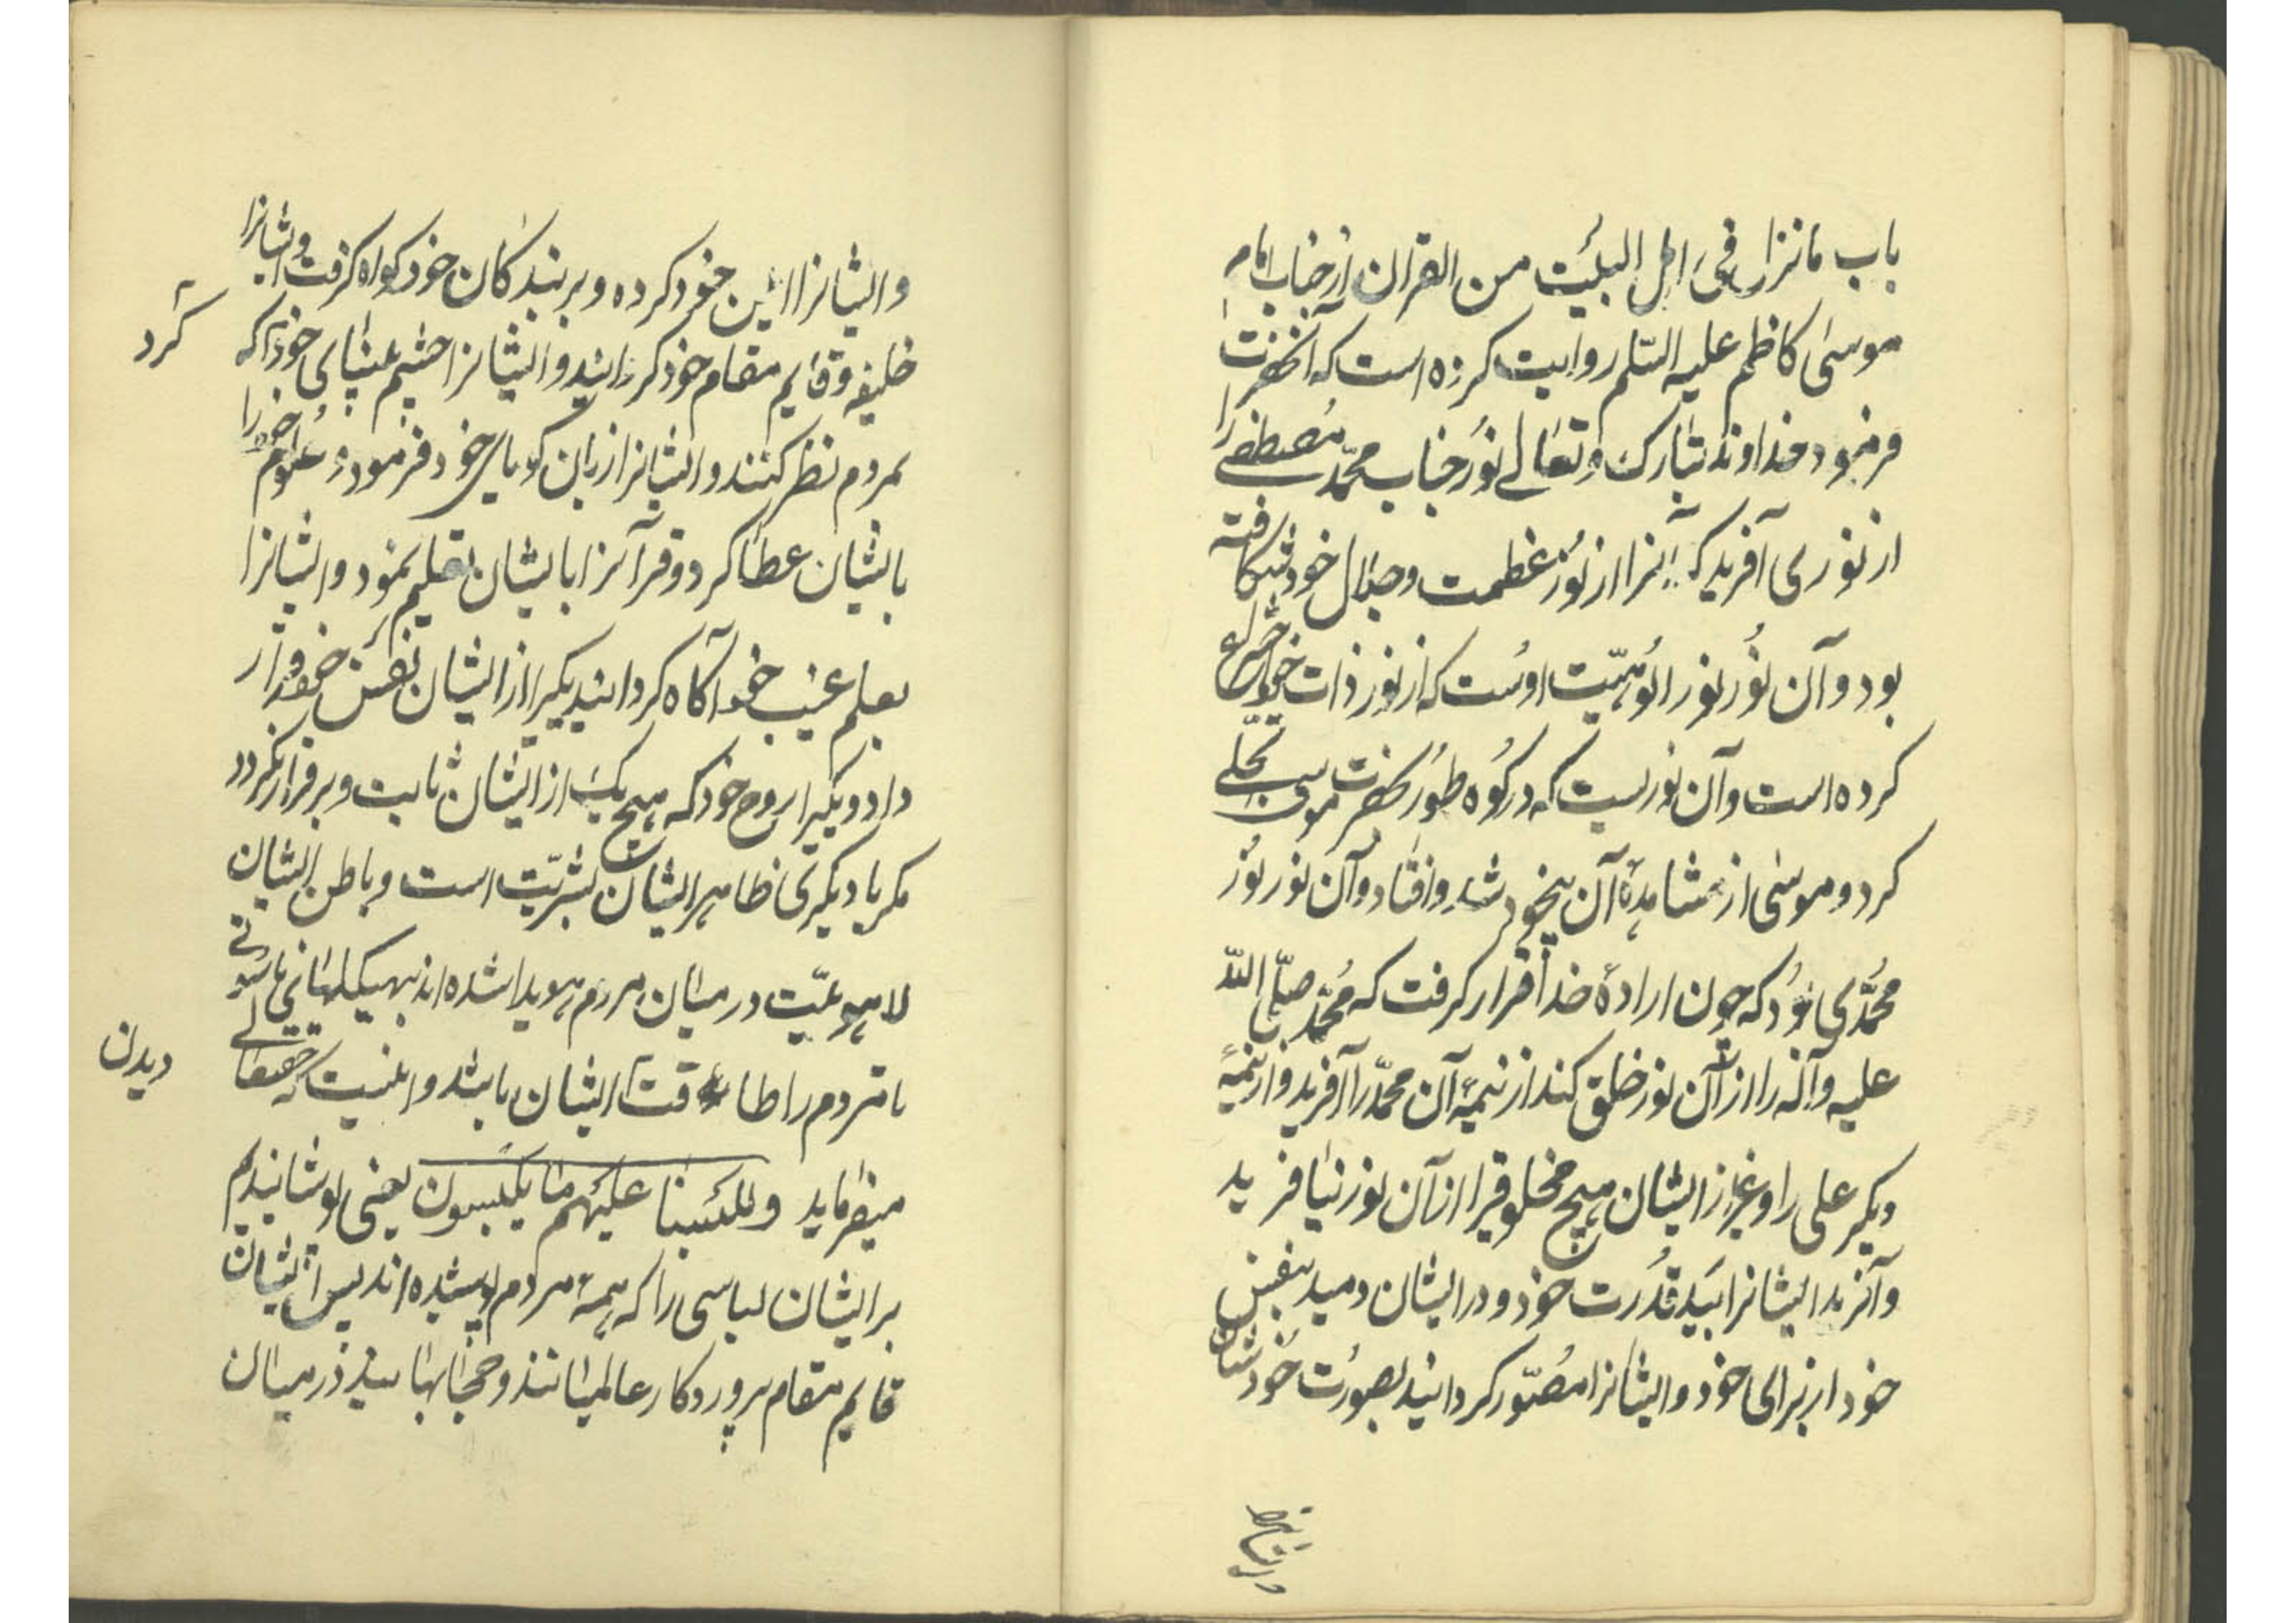 باب ما نزل فی اهل البیت من القران از جناب امام
موسی کاظم علیه السّلم روایت کرده است که آنحضرت
فرمود خداوند تبارک و تعالی نور جناب محمّد مصطفی را
از نوری آفرید که آنرا از نور عظمت و جلال خود شکافته
بود و آن نور نور الوهیّت اوست که از نور ذات خود اختراع
کرده است و آن نوریست که در کوه طور بحضرت موسی تجلّی
کرد و موسی از مشاهدۀ آن بیخود شد و افتاد و آن نور نور
محمّدی بود که چون ارادۀ خدا قرار گرفت که محمّد صلّی اللّه
علیه و آله را از آن نور خلق کند از نیمۀ آن محمّد را آفرید و از نیمۀ
دیگر علی را و غیر از ایشان هیچ مخلوقیرا از آن نور نیافرید
و آفرید ایشانرا بید قدرت خود و در ایشان دمید بنفس
خود از برای خود و ایشانرا مصوّر گردانید بصورت خودشان
و ایشانرا
و ایشانرا امین خود کرده و بر بندگان خود گواه گرفت و ایشانرا
خلیفه و قایم مقام خود گردانید و ایشانرا چشم بینای خود که
کرد
بمردم نظر کنند و ایشانرا زبان گویای خود فرمود و علوم خود را
بایشان عطا کرد و قرآنرا بایشان تعلیم نمود و ایشانرا
بعلم غیب خود آگاه گردانید یکیرا از ایشان نفس خود قرار
داد و یکیرا روح خود که هیچ یک از ایشان ثابت و برقرار نگردد
مگر با دیگری ظاهر ایشان بشریّت است و باطن ایشان
لاهوتیّت در میان مردم هویدا شده اند بهیکلهای ناسوتی
تا مردم را طاقت ایشان باشد و اینست که حقتعالی
دیدن
میفرماید وللبسنا علیهم ما یلبسون یعنی پوشانیدیم
بر ایشان لباسی را که همۀ مردم پوشیده اند پس ایشان
قایم مقام پروردگار عالمیانند و حجابهایند در میان